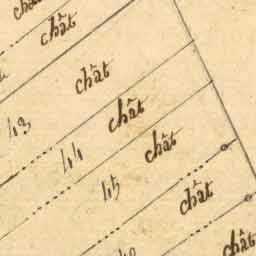 chât
chât
chât
43
chât
44
chât
45
chât
chât